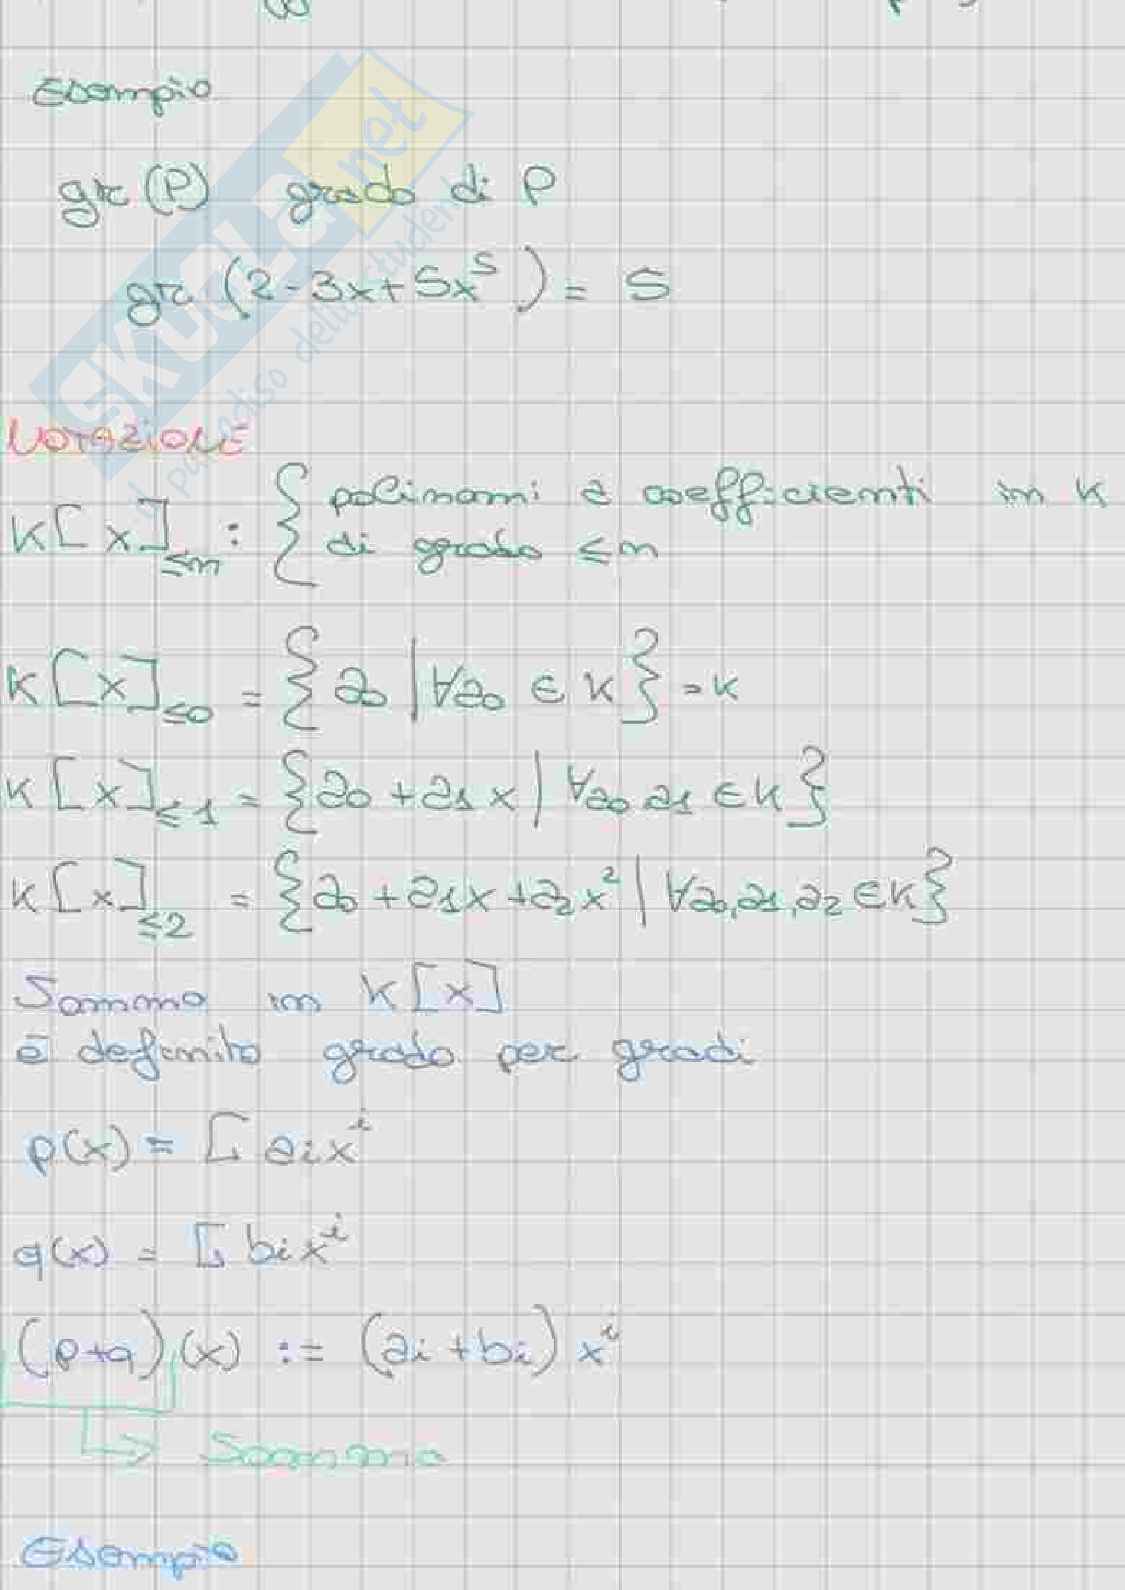 Esempio
gr (P) grado di P
gr (2-3x+5x⁵) = 5
NOTAZIONE
K[x]≤n : { polinomi a coefficienti in K
di grado ≤n
K[x]≤0 = {a0 | ∀a0 ∈ K} = K
K[x]≤1 = {a0 + a1 x | ∀a0 a1 ∈ K}
K[x]≤2 = {a0 + a1x + a2x² | ∀a0, a1, a2 ∈ K}
Somma in K[x]
è definito grado per gradi
p(x) = Σ aix^i
q(x) = Σ bix^i
(p+q)(x) := (ai+bi) x^i
↳ Somma
Esempio
SKUOLA.net
il paradiso dello studente